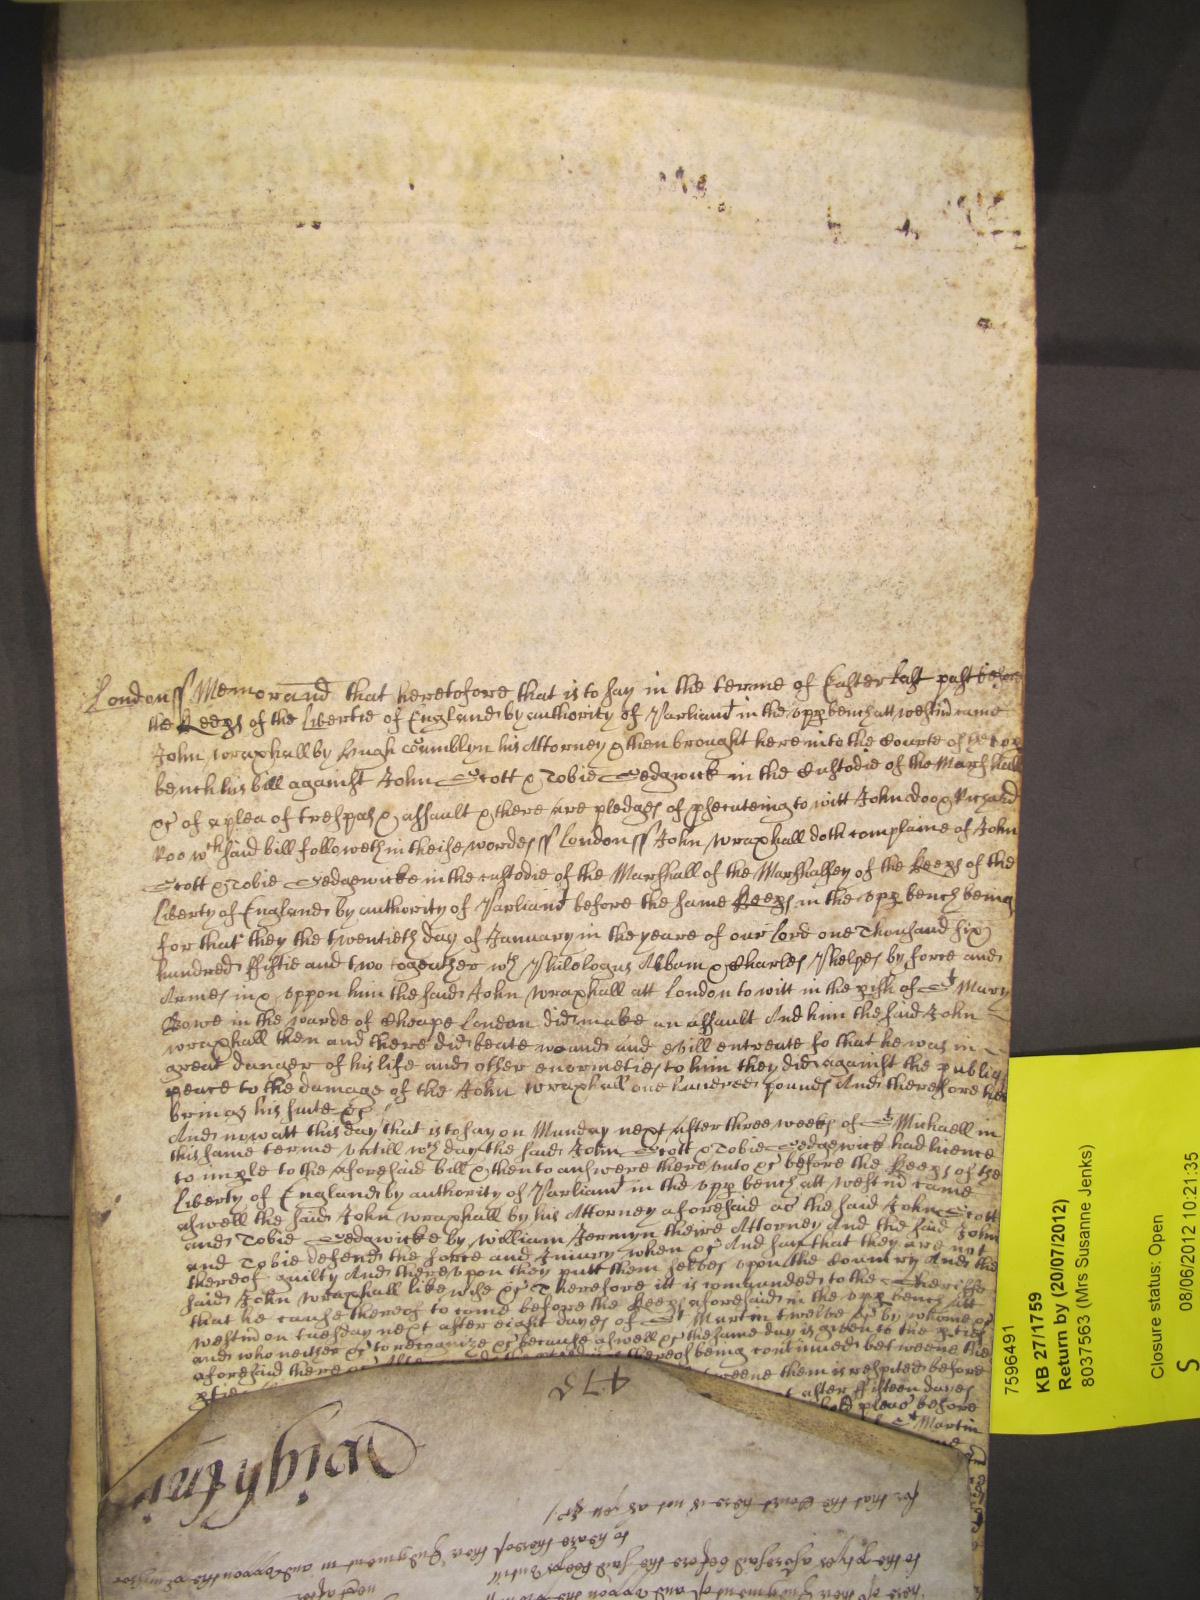 London ss Memorand that heretofore that is to say in the terme of Easter last past before
the Keeps of the Libertie of England by authority of Parliamt in the upp bench att westm came
John wraxhall by Hugh Comblyn his Attorney & then brought here into the Courte of the upp
bench his bill against John Scott & Tobie Sedgwick in the Custodie of the Marshall
&c of a plea of trespas & assault & there are pledges of psecuteing to witt John doo & Richard
Roo wch said bill followeth in theise wordes ss London ss John wraxhall doth complaine of John
Scott & Tobie Sedgewicke in the custodie of the Marshall of the Marshalsey of the Keeps of the
Liberty of England by authority of Parliamt before the same Keeps in the upp bench being
for that they the twentieth day of January in the yeare of our Lord one Thousand six
hundred ffiftie and two togeather wth Philologus Abbam & Charles Phelpes by force and
Armes in & uppon him the said John wraxhall att London to witt in the pish of St Mary
Bowe in the warde of Cheape London did make an assault And him the said John
wraxhall then and there did beate wound and evill entreate so that he was in
great danger of his life and other enormeties to him they did against the publiq
peace to the damage of the John wraxhall one hundred pounds And therefore hee
brings his suite &c
And now att this day that is to say on Munday next after three weeks of St Michaell in
this same terme untill wch day the said John Scott & Tobie Sedgewick had licence
to imple to the aforesaid bill & then to answere thereunto &c before the Keeps of the
Liberty of England by authority of Parliamt in the upp bench att westm came
aswell the said John wraxhall by his Attorney aforesaid as the said John Scott
and Tobie Sedgewicke by william Jermyn theire Attorney And the said John
and Tobie defend the force and Iniury when &c And say that they are not
thereof guilty And thereupon they putt them selves upon the Country And the
said John wraxhall likewise &c Therefore itt is comaunded to the Sheriffe
that he cause thereof to come before the Keeps aforesaid in the upp bench att
westm on tuesday next after eight dayes of St Martin twelve &c by whome &c
and who neither &c to recognize &c because aswell &c the same day is given to the pties
aforesaid there &c thereof being continued betweene the
pties them is respited before
after ffifteen dayes
hold pleas before
St Martin
475
for that the Court here is not as yett &c
to heare thereof their Judgment
to the ptyes aforesaid before the said keeps untill
next after
here of their Judgment of and uppon the
7596491
KB 27/1759
Return by (20/07/2012)
8037563 (Mrs Susanne Jenks)
Closure status: Open
08/06/2012 10:21:35
S